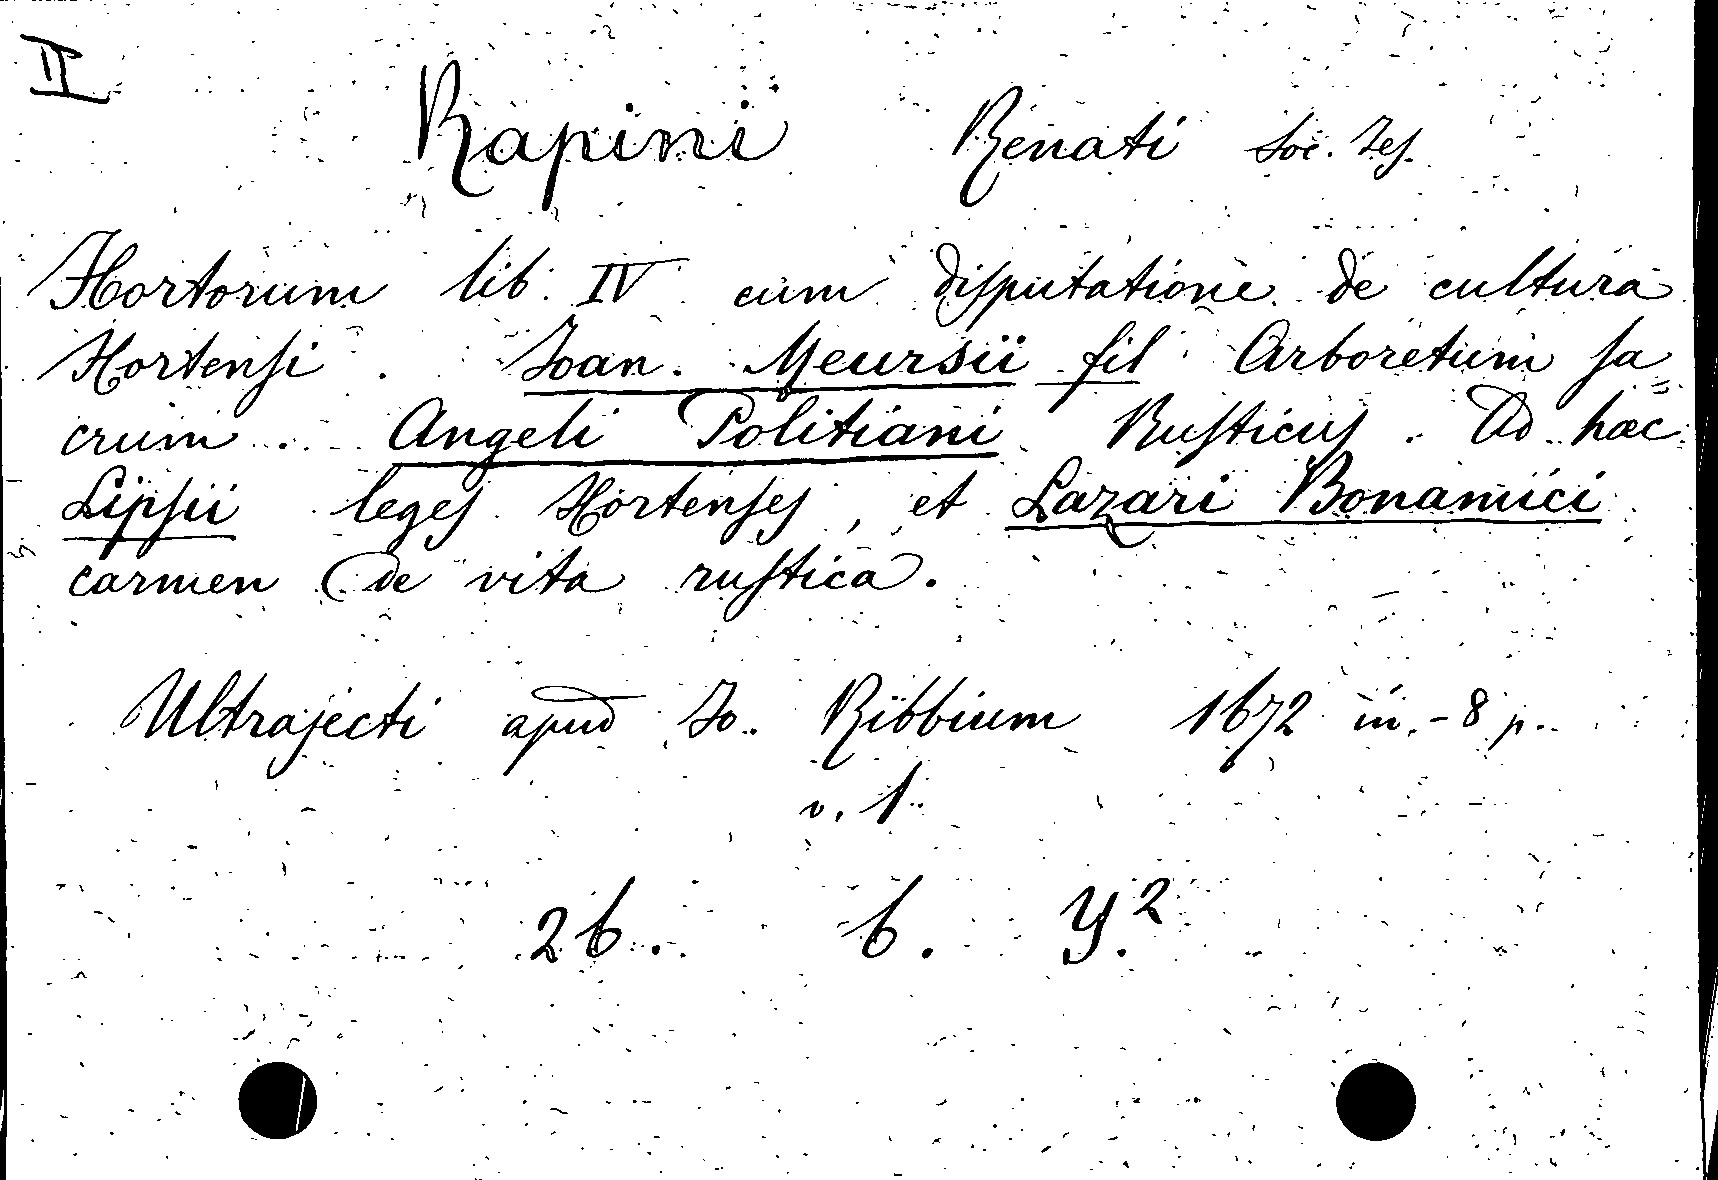 II
Rapini Renati Soc. Jes.
Hortorum lib. IV cum disputatione de cultura
Hortensi. Joan. Meursii fil Arboretum sa=
crum. Angeli Politiani Rusticus. Ad hæc
Lipsii leges Hortenses, et Lazari Bonamici
carmen de vita rustica.
Ultrajecti apud Jo. Ribbium 1672 in.-8 p.
v. 1
26. 6. Y.2